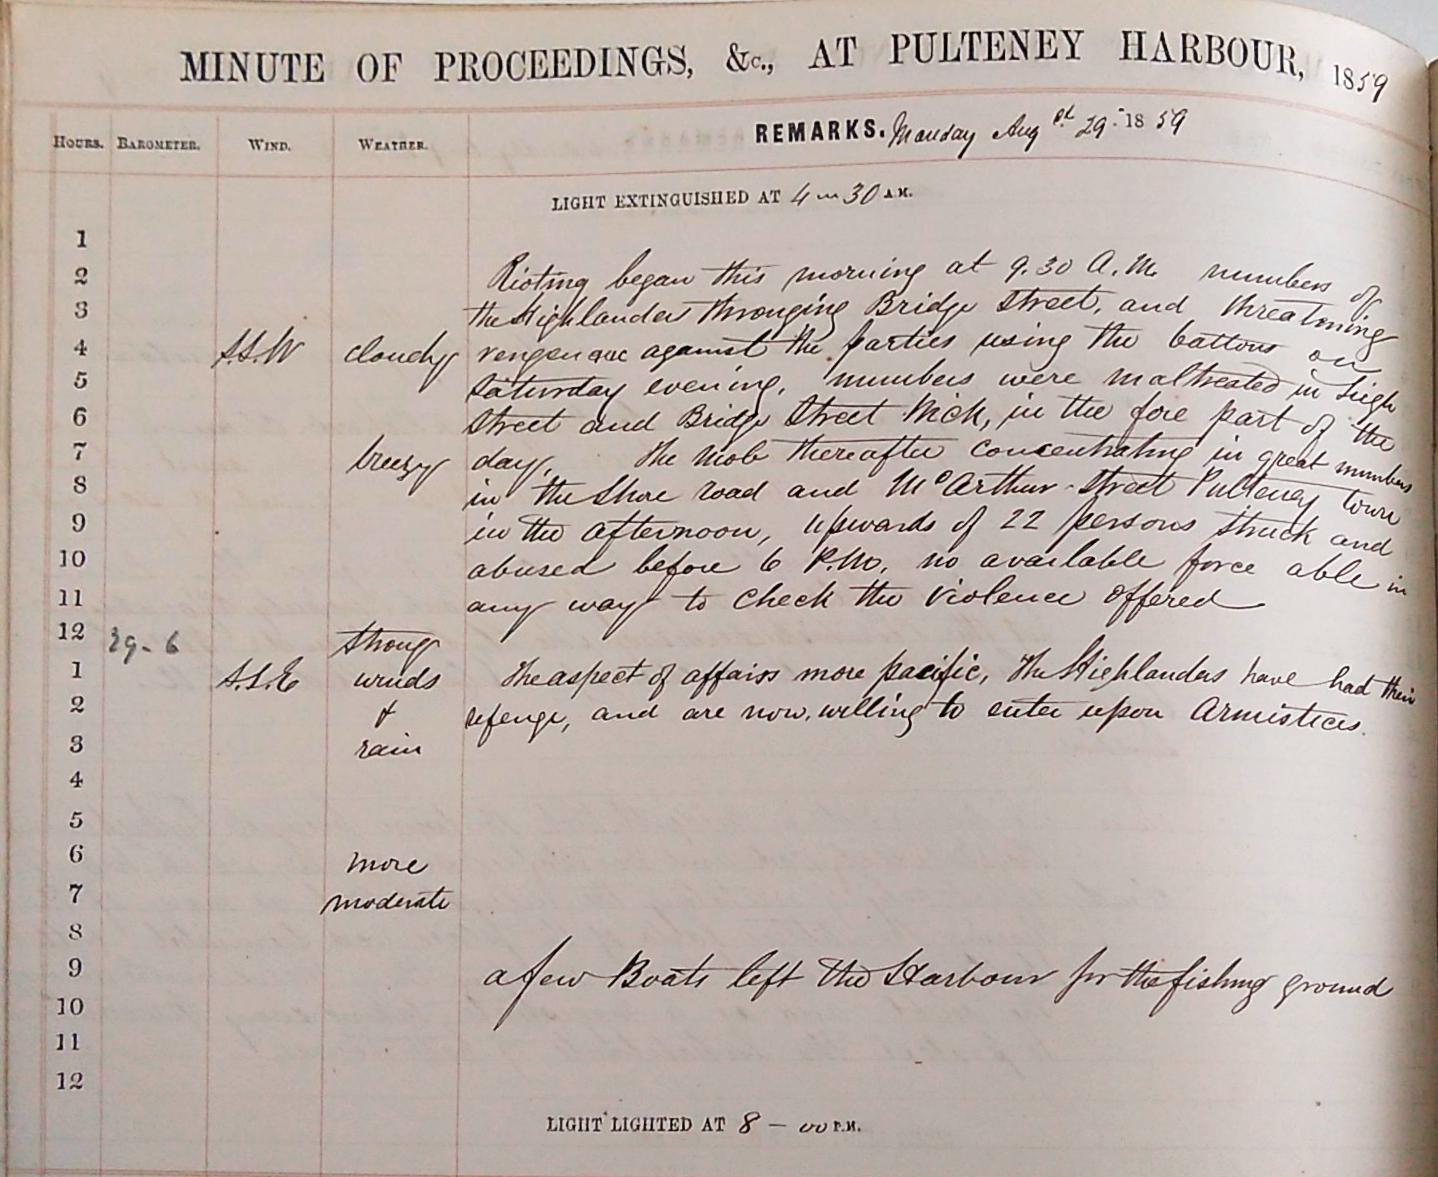 MINUTE OF PROCEEDINGS, &c., AT PULTENEY HARBOUR, 1859
HOURS. BAROMETER. WIND. WEATHER. REMARKS. Monday Augst 29th 1859
LIGHT EXTINGUISHED AT 4 - 30 A.M.
1
2 Rioting began this morning at 9.30 A.M. numbers of
3 the Highlanders thronging Bridge Street, and threatening
4 S.S.W cloudy vengeance against the parties using the battons on
5 Saturday evening, numbers were maltreated in High
6 Street and Bridge Street Wick, in the fore part of the
7 breezy day. The Mob thereafter concentrating in great numbers
8 in the Shore road and McArthur Street Pulteney town
9 in the afternoon, upwards of 22 persons struck and
10 abused before 6 P.M. no available force able in
11 any way to check the violence offered
12 29-6 Strong
1 S.S.E winds The aspect of affairs more pacific, The Highlanders have had their
2 & refenge, and are now willing to enter upon Armistices.
3 rain
4
5
6 more
7 moderate
8
9 a few Boats left the Harbour for the fishing ground
10
11
12
LIGHT LIGHTED AT 8 - 00 P.M.